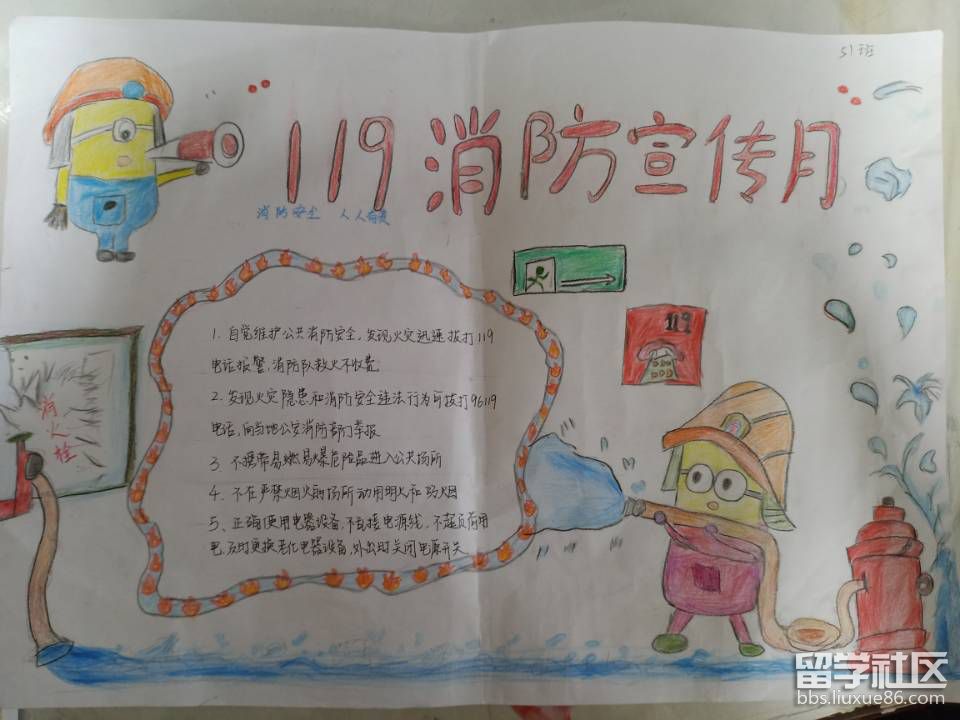 51班
119消防宣传月
消防安全 人人有责
119
消火栓
1. 自觉维护公共消防安全,发现火灾迅速拔打119
电话报警,消防队救火不收费
2. 发现火灾隐患和消防安全违法行为可拔打96119
电话,向当地公安消防部门举报
3 不携带易燃易爆危险品进入公共场所
4. 不在严禁烟火的场所动用明火和吸烟
5. 正确使用电器设备,不乱接电源线,不超负荷用
电,及时更换老化电器设备,外出时关闭电源开关
留学社区
bbs.liuxue86.com